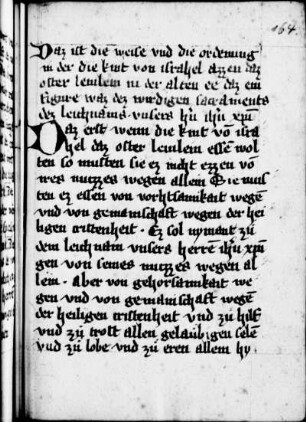 164.
Daz ist die weise vnd die ordenung
in der die kint von israhel azzen daz
oster lemlem in der alten ee daz ein
figure waz dez wirdigen sacraments
dez leichnams vnsers hn ihu xpi
Daz erst wenn die kint vō isra
hel daz oster lemlem essē wol
ten so musten sie ez nicht ezzen vō
irres nutzzes wegen allein Sie mus
ten ez essen von vorhtsamkait wegē
vnd von gemainschaft wegen der hei
ligen cristenheit · Ez sol nymant zū
dem leichnam vnsers herrē ihu xpi
gen von seines nutzzes wegen al
lein · Aber von gehorsamkait we
gen vnd von gemainschaft wegē
der heiligen cristenheit vnd zū hilf
vnd zū trost allen gelaubigen selē
vnd zū lobe vnd zū eren allem hy